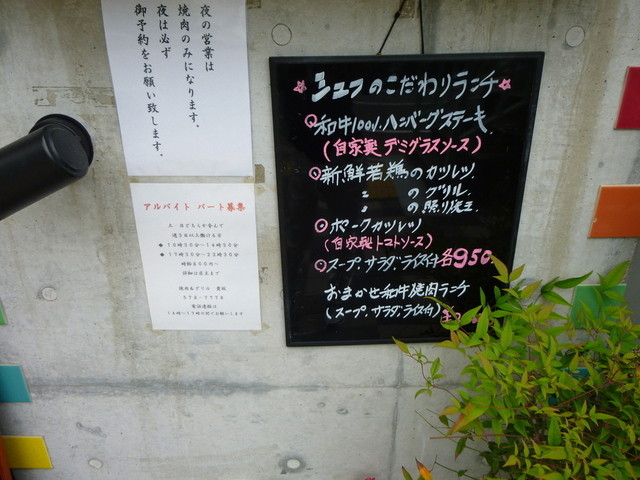 夜の営業は
焼肉のみになります。
夜は必ず
御予約をお願い致します。
アルバイト パート募集
●10時30分～14時30分
●17時30分～22時30分
シェフのこだわりランチ
和牛100%ハンバーグステーキ
(自家製デミグラスソース)
新鮮若鶏のカツレツ
〃 のグリル
〃 の照り焼き
ポークカツレツ
(自家製トマトソース)
スープ.サラダ.ライス付各950
おまかせ和牛焼肉ランチ
(スープ.サラダ.ライス付)